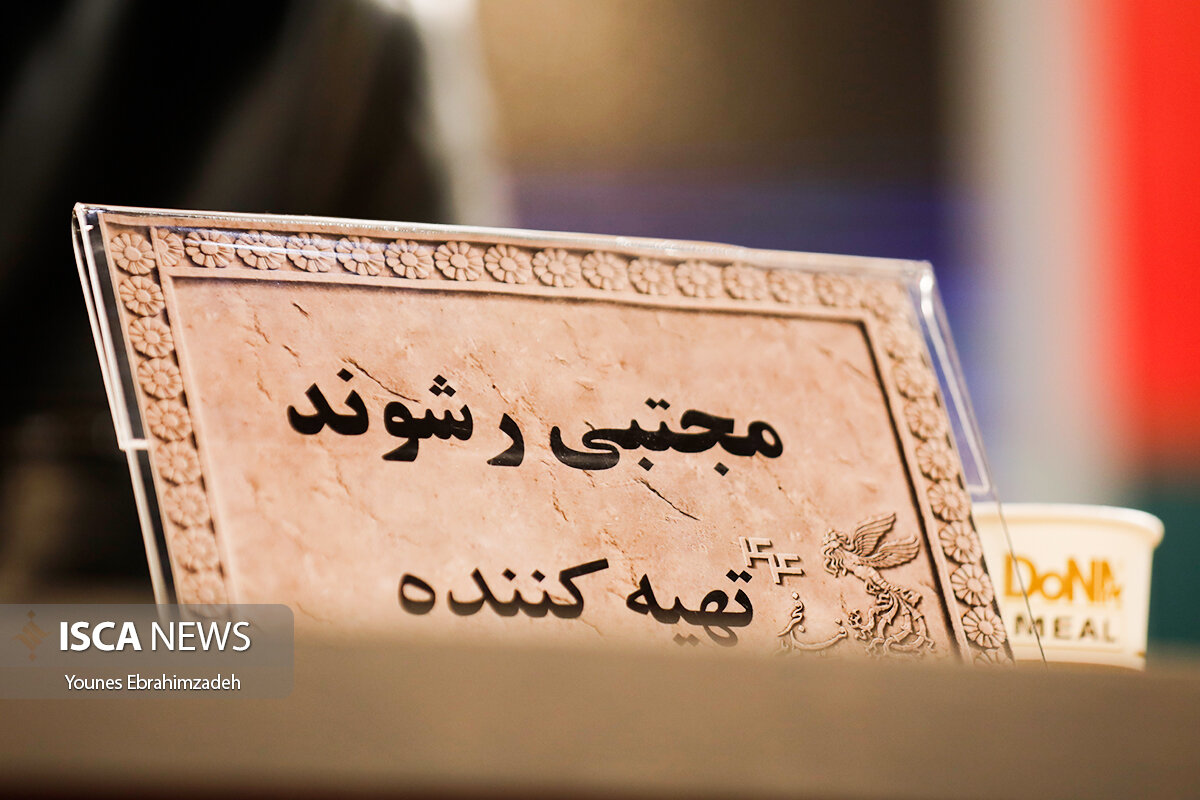 مجتبی رشوند
تهیه کننده
FF
فجر
DoNA
MEAL
ISCA NEWS
Younes Ebrahimzadeh